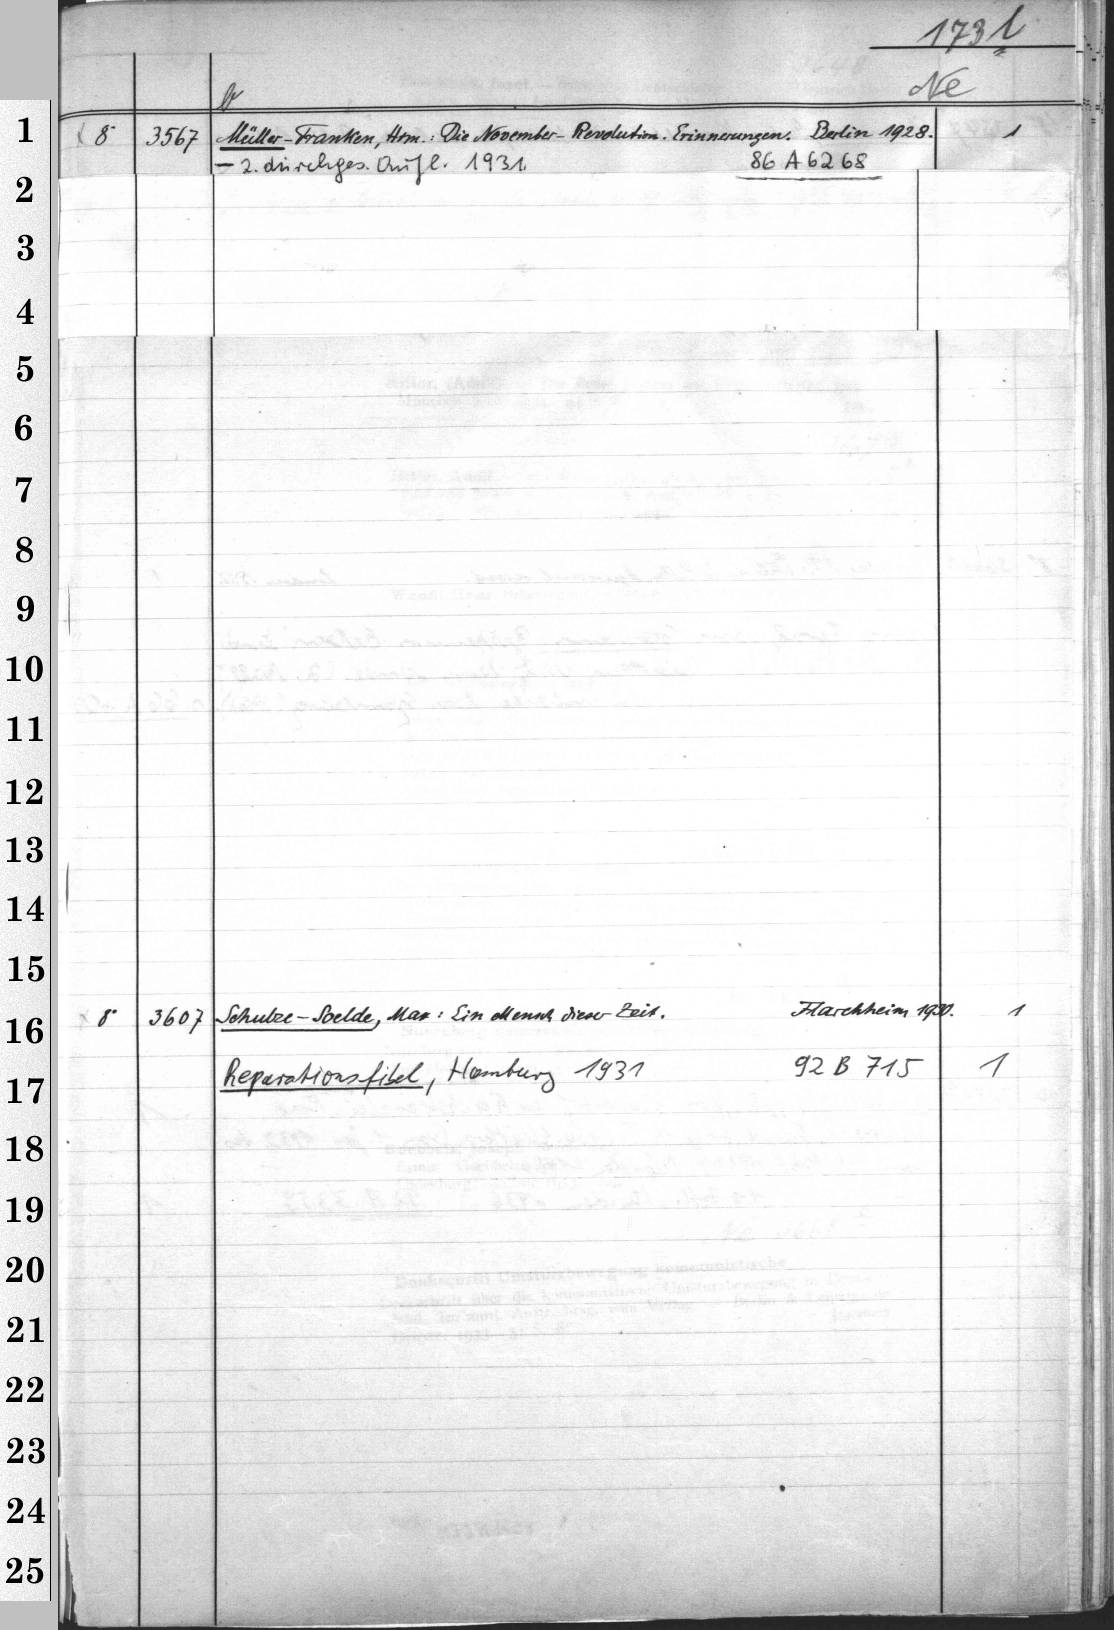 173 l
Ne
b
1 8° 3567 Müller-Franken, Hrm.: Die November-Revolution. Erinnerungen. Berlin 1928. 1
— 2. durchges. Aufl. 1931. 86 A 6268
2
3
4
5
6
7
8
9
10
11
12
13
14
15
16 8° 3607 Schulze-Soelde, Max: Ein Mensch dieser Zeit. Flarchheim 1930. 1
17 Reparationsfibel, Hamburg 1931 92 B 715 1
18
19
20
21
22
23
24
25